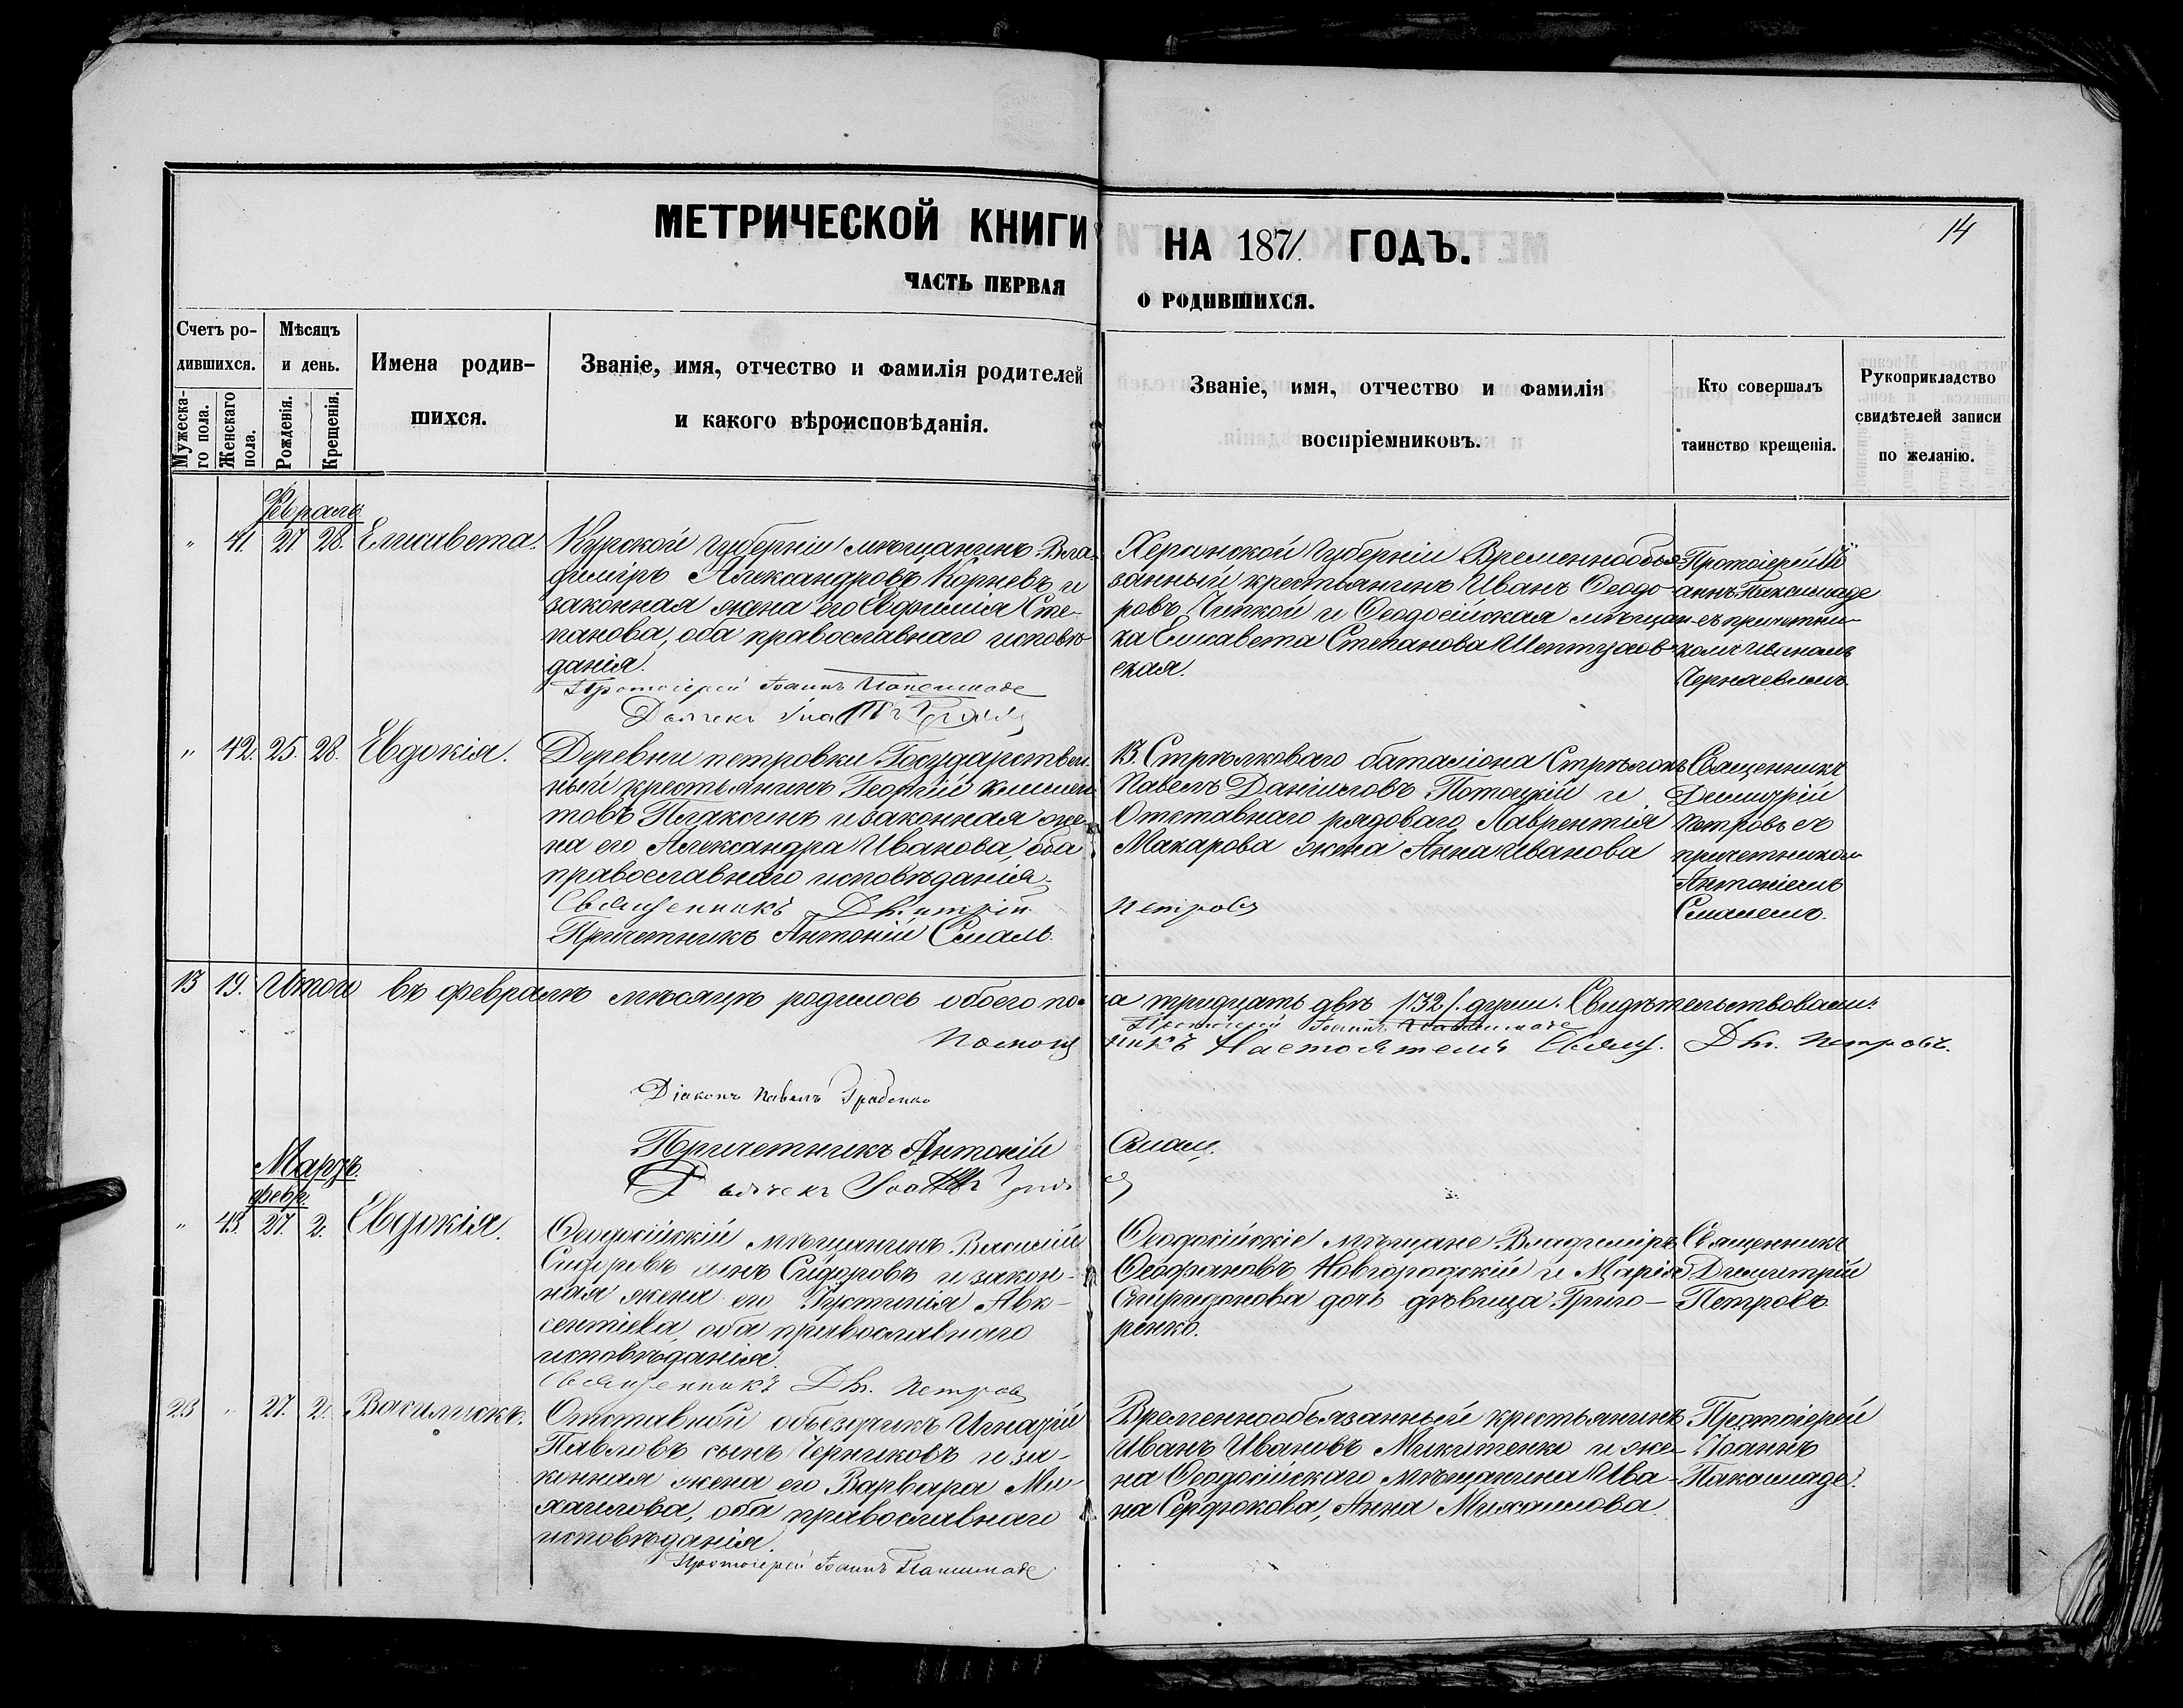 МЕТРИЧЕСКОЙ КНИГИ НА 1871. ГОДЪ.
14
ЧАСТЬ ПЕРВАЯ О РОДИВШИХСЯ.
Счетъ ро-
дившихся.
Мужеска-
го пола.
Женскаго
пола.
Мѣсяцъ
и день.
Рожденія.
Крещенія.
Имена родив-
шихся.
Званіе, имя, отчество и фамилія родителей
и какого вѣроисповѣданія.
Званіе, имя, отчество и фамилія
воспріемниковъ.
Кто совершалъ
таинство крещенія.
Рукоприкладство
свидѣтелей записи
по желанію.
Февраль.
" 41. 27 28. Елисавета.
Курской губерніи мѣщанинъ Вла-
диміръ Александровъ Корневъ и
законная жена его Евфимія Сте-
панова, оба православнаго исповѣ-
данія.
Протоіерей Іоаннъ
Херсонской Губерніи Временнообя-
занный крестьянинъ Иванъ Ѳеодо-
ровъ и Ѳеодосійская мѣщан-
ка Елисавета Степанова
ская.
Протоіерей Іо-
аннъ
съ причетни-
комъ
" 42. 25. 28. Евдокія.
Деревни петровки Государствен-
ный крестьянинъ Георгій Климен-
товъ Плаксинъ и законная же-
на его Александра Иванова, оба
православнаго исповѣданія.
Священникъ Дмитрій Петровъ
Причетникъ Антоній Смаль.
13. Стрѣлковаго баталіона Стрѣлокъ
Павелъ Даниловъ Потоцкій и
Отставнаго рядоваго Лаврентія
Макарова жена Анна Иванова
Священникъ
Димитрій
Петровъ съ
причетником
Антоніемъ
Смалемъ.
13 19. Итого въ февралѣ мѣсяцѣ родилось обоего пола тридцать двѣ /32/. души. Свидѣтельствовали:
Протоіерей Іоаннъ
Помощникъ Настоятеля Свящ. Дм. Петровъ.
Діаконъ Павелъ
Причетникъ Антоній Смаль.
Мартъ.
февр.
" 43. 27. 2. Евдокія.
Ѳеодосійскій мѣщанинъ Василій
Сидоровъ сынъ Сидоровъ и закон-
ная жена его Іустинія Авк-
сентіева, оба православнаго
исповѣданія.
Священникъ Дм. Петровъ
Ѳеодосійскіе мѣщане Владиміръ
Ѳеофановъ Новгородскій и Марія
Спиридонова дочь дѣвица Григо-
ренко.
Священникъ
Димитрій
Петровъ
23 " 27. 2. Василискъ.
Отставной объездчикъ Игнатій
Павловъ сынъ Черниковъ и за-
конная жена его Варвара Ми-
хаилова, оба православнаго
исповѣданія.
Протоіерей Іоаннъ
Временнообязанный крестьянинъ
Иванъ Ивановъ Микитенко и же-
на Ѳеодосійскаго мѣщанина Ива-
на Сердюкова, Анна Михаилова.
Протоіерей
Іоаннъ